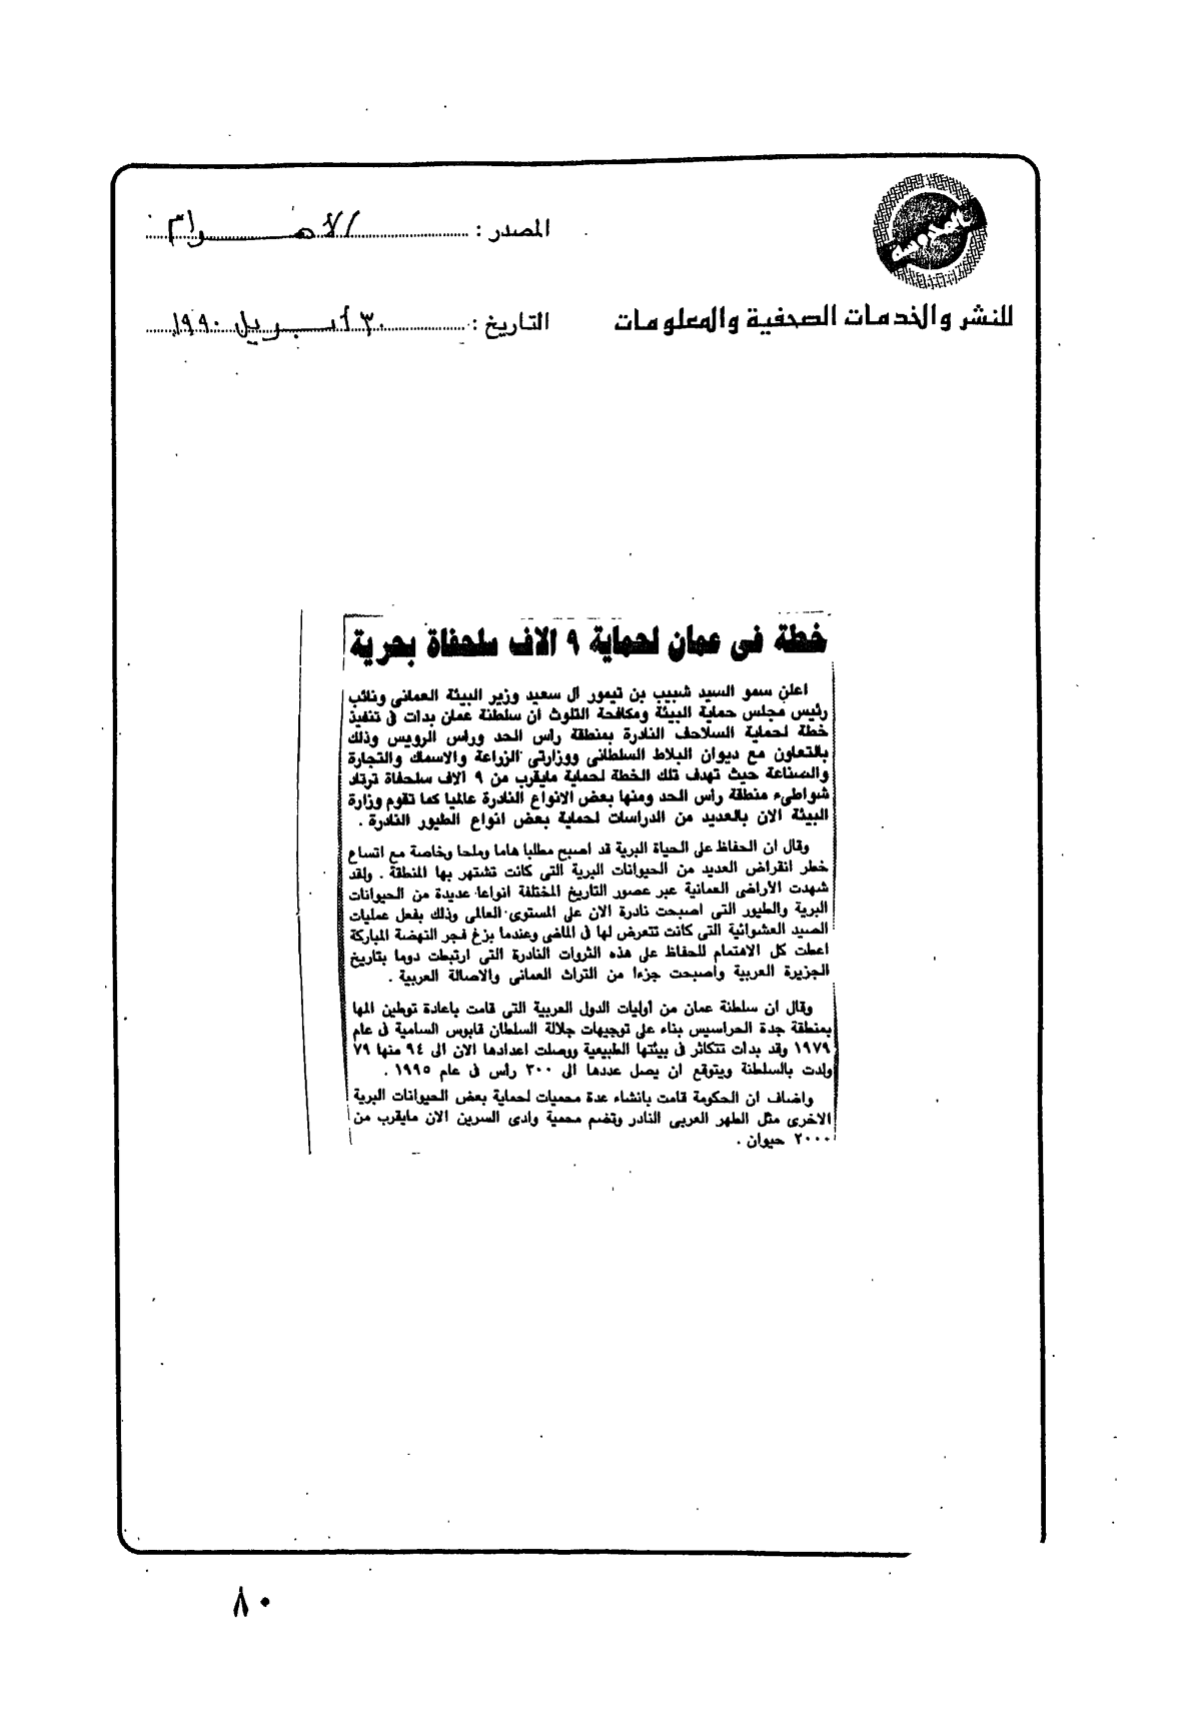 المصدر : الأهرام
للنشر والخدمات الصحفية والمعلومات
التاريخ : ٣٠ أبريل ١٩٩٠
خطة فى عمان لحماية ٩ الاف سلحفاة بحرية
اعلن سمو السيد شبيب بن تيمور ال سعيد وزير البيئة العمانى ونائب
رئيس مجلس حماية البيئة ومكافحة التلوث ان سلطنة عمان بدات فى تنفيذ
خطة لحماية السلاحف النادرة بمنطقة راس الحد وراس الرويس وذلك
بالتعاون مع ديوان البلاط السلطانى ووزارتى الزراعة والاسماك والتجارة
والصناعة حيث تهدف تلك الخطة لحماية مايقرب من ٩ الاف سلحفاة ترتاد
شواطىء منطقة رأس الحد ومنها بعض الانواع النادرة عالميا كما تقوم وزارة
البيئة الان بالعديد من الدراسات لحماية بعض انواع الطيور النادرة .
وقال ان الحفاظ على الحياة البرية قد اصبح مطلبا هاما وملحا وخاصة مع اتساع
خطر انقراض العديد من الحيوانات البرية التى كانت تشتهر بها المنطقة . ولقد
شهدت الأراضى العمانية عبر عصور التاريخ المختلفة انواعا عديدة من الحيوانات
البرية والطيور التى اصبحت نادرة الان على المستوى العالمى وذلك بفعل عمليات
الصيد العشوائية التى كانت تتعرض لها فى الماضى وعندما بزغ فجر النهضة المباركة
اعطت كل الاهتمام للحفاظ على هذه الثروات النادرة التى ارتبطت دوما بتاريخ
الجزيرة العربية واصبحت جزءا من التراث العمانى والاصالة العربية .
وقال ان سلطنة عمان من أوليات الدول العربية التى قامت باعادة توطين المها
بمنطقة جدة الحراسيس بناء على توجيهات جلالة السلطان قابوس السامية فى عام
١٩٧٩ وقد بدات تتكاثر فى بيئتها الطبيعية ووصلت اعدادها الان الى ٩٤ منها ٧٩
ولدت بالسلطنة ويتوقع ان يصل عددها الى ٣٠٠ رأس فى عام ١٩٩٥ .
واضاف ان الحكومة قامت بانشاء عدة محميات لحماية بعض الحيوانات البرية
الاخرى مثل الطهر العربى النادر وتضم محمية وادى السرين الان مايقرب من
٢٠٠٠ حيوان .
٨٠